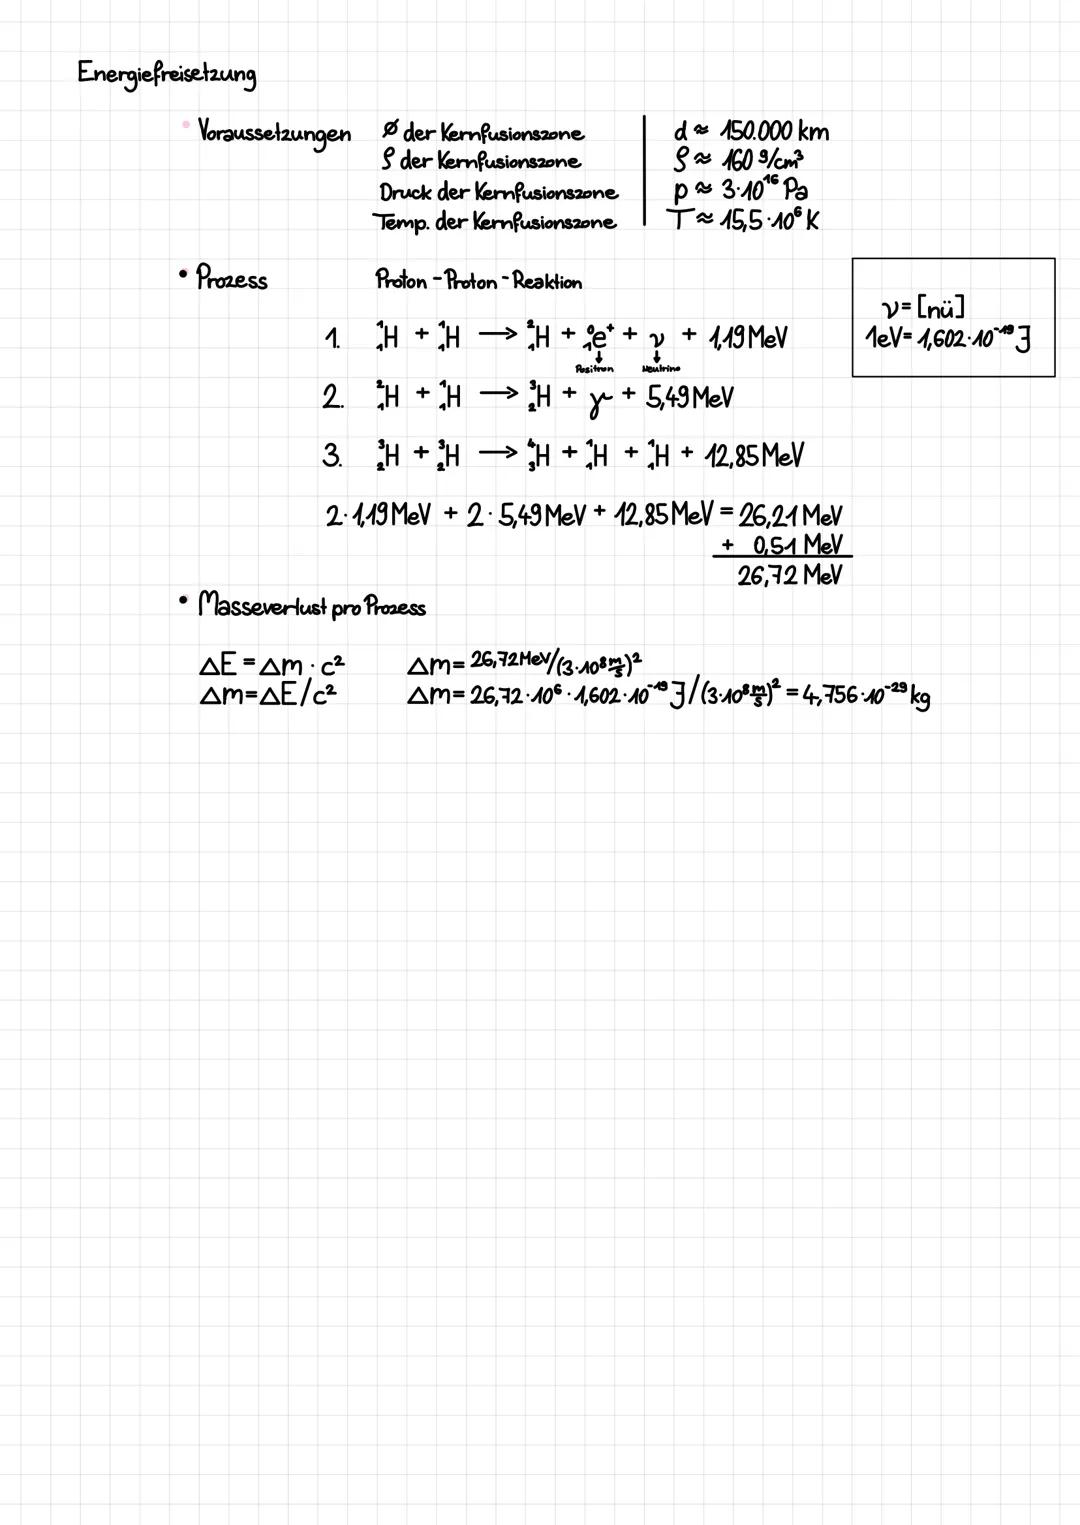 Energiefreisetzung
• Voraussetzungen ø der Kernfusionszone | d ≈ 150.000 km
ρ der Kernfusionszone | ρ ≈ 160 g/cm³
Druck der Kernfusionszone | p ≈ 3·10¹⁶ Pa
Temp. der Kernfusionszone | T ≈ 15,5·10⁶ K
• Prozess Proton-Proton-Reaktion
ν = [nü]
1eV = 1,602·10⁻¹⁹ J
1. ¹₁H + ¹₁H → ²₁H + ⁰₁e⁺ + ν + 1,19 MeV
Positron Neutrino
2. ²₁H + ¹₁H → ³₂H + γ + 5,49 MeV
3. ³₂H + ³₂H → ⁴₃H + ¹₁H + ¹₁H + 12,85 MeV
2·1,19 MeV + 2·5,49 MeV + 12,85 MeV = 26,21 MeV
+ 0,51 MeV
26,72 MeV
• Masseverlust pro Prozess
ΔE = Δm · c² Δm = 26,72 MeV/(3·10⁸ m/s)²
Δm = ΔE/c² Δm = 26,72·10⁶·1,602·10⁻¹⁹ J/(3·10⁸ m/s)² = 4,756·10⁻²⁹ kg